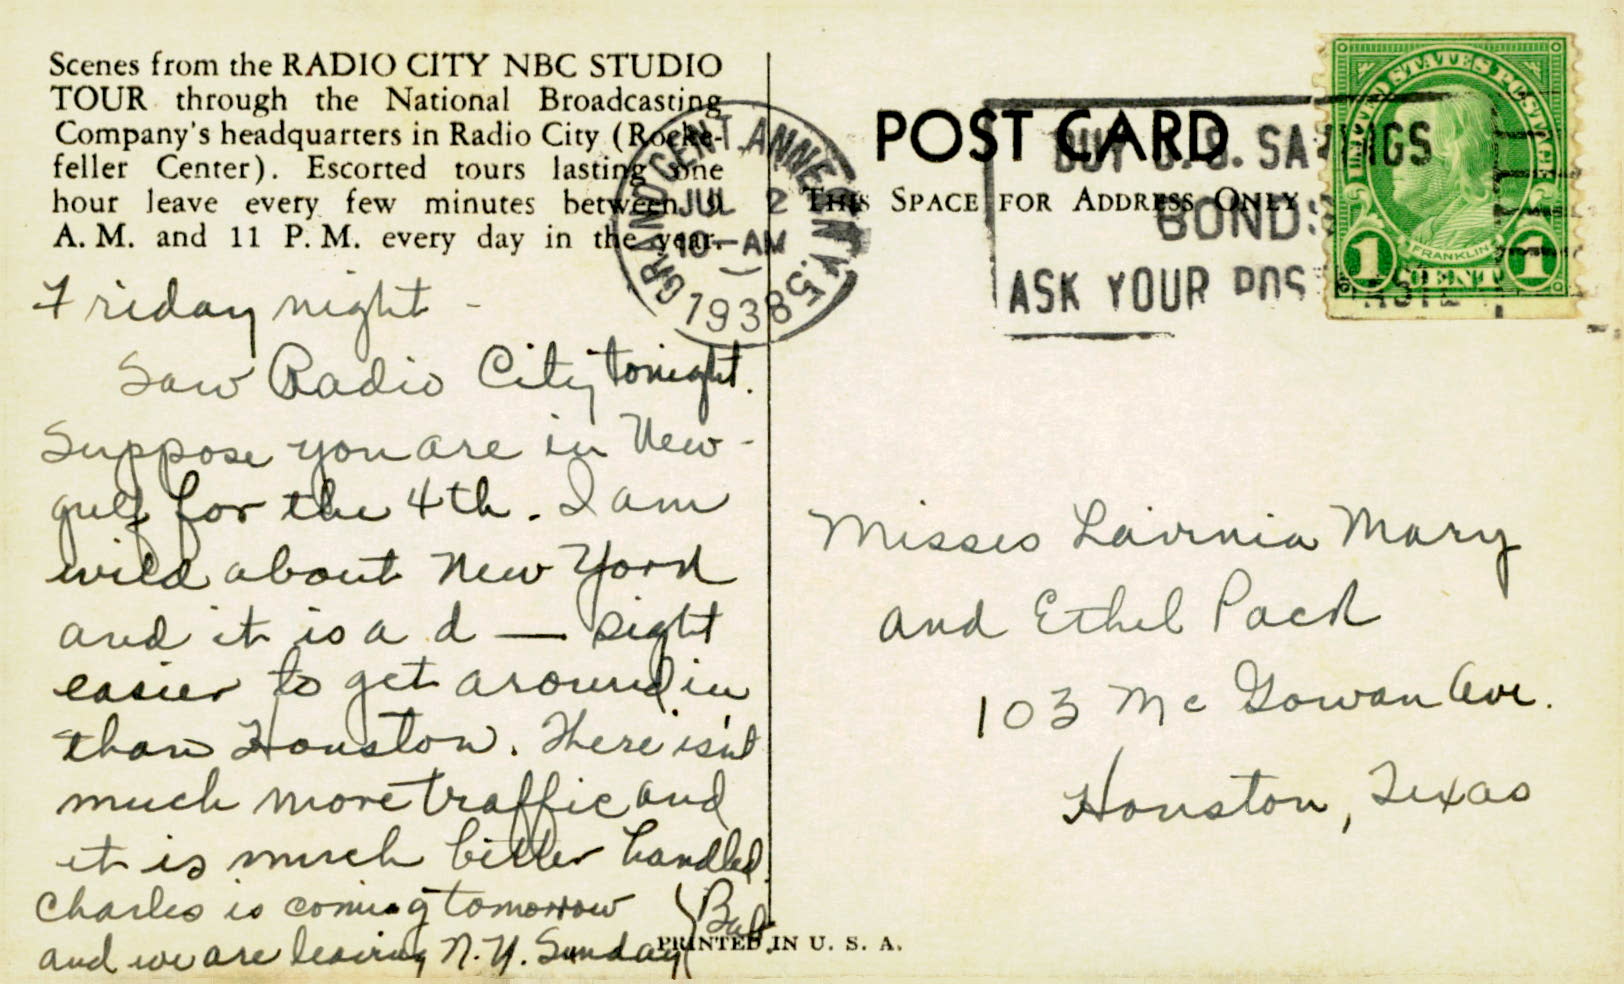 Scenes from the RADIO CITY NBC STUDIO
TOUR through the National Broadcasting
Company's headquarters in Radio City (Rocke-
feller Center). Escorted tours lasting one
hour leave every few minutes between 9
A. M. and 11 P. M. every day in the year.
Friday night -
Saw Radio City tonight.
Suppose you are in New-
gulf for the 4th. I am
wild about New York
and it is a d — sight
easier to get around in
than Houston. There isn't
much more traffic and
it is much better handled.
Charles is coming tomorrow
and we are leaving N.Y. Sunday
PRINTED IN U. S. A.
GRAND CENT. ANNEX N.Y.
JUL 2
10-AM
1938
POST CARD
THIS SPACE FOR ADDRESS ONLY
BUY U.S. SAVINGS
BONDS
ASK YOUR POSTMASTER
UNITED STATES POSTAGE
FRANKLIN
1 CENT 1
Misses Lavinia Mary
and Ethel Pack
103 McGowan Ave.
Houston, Texas